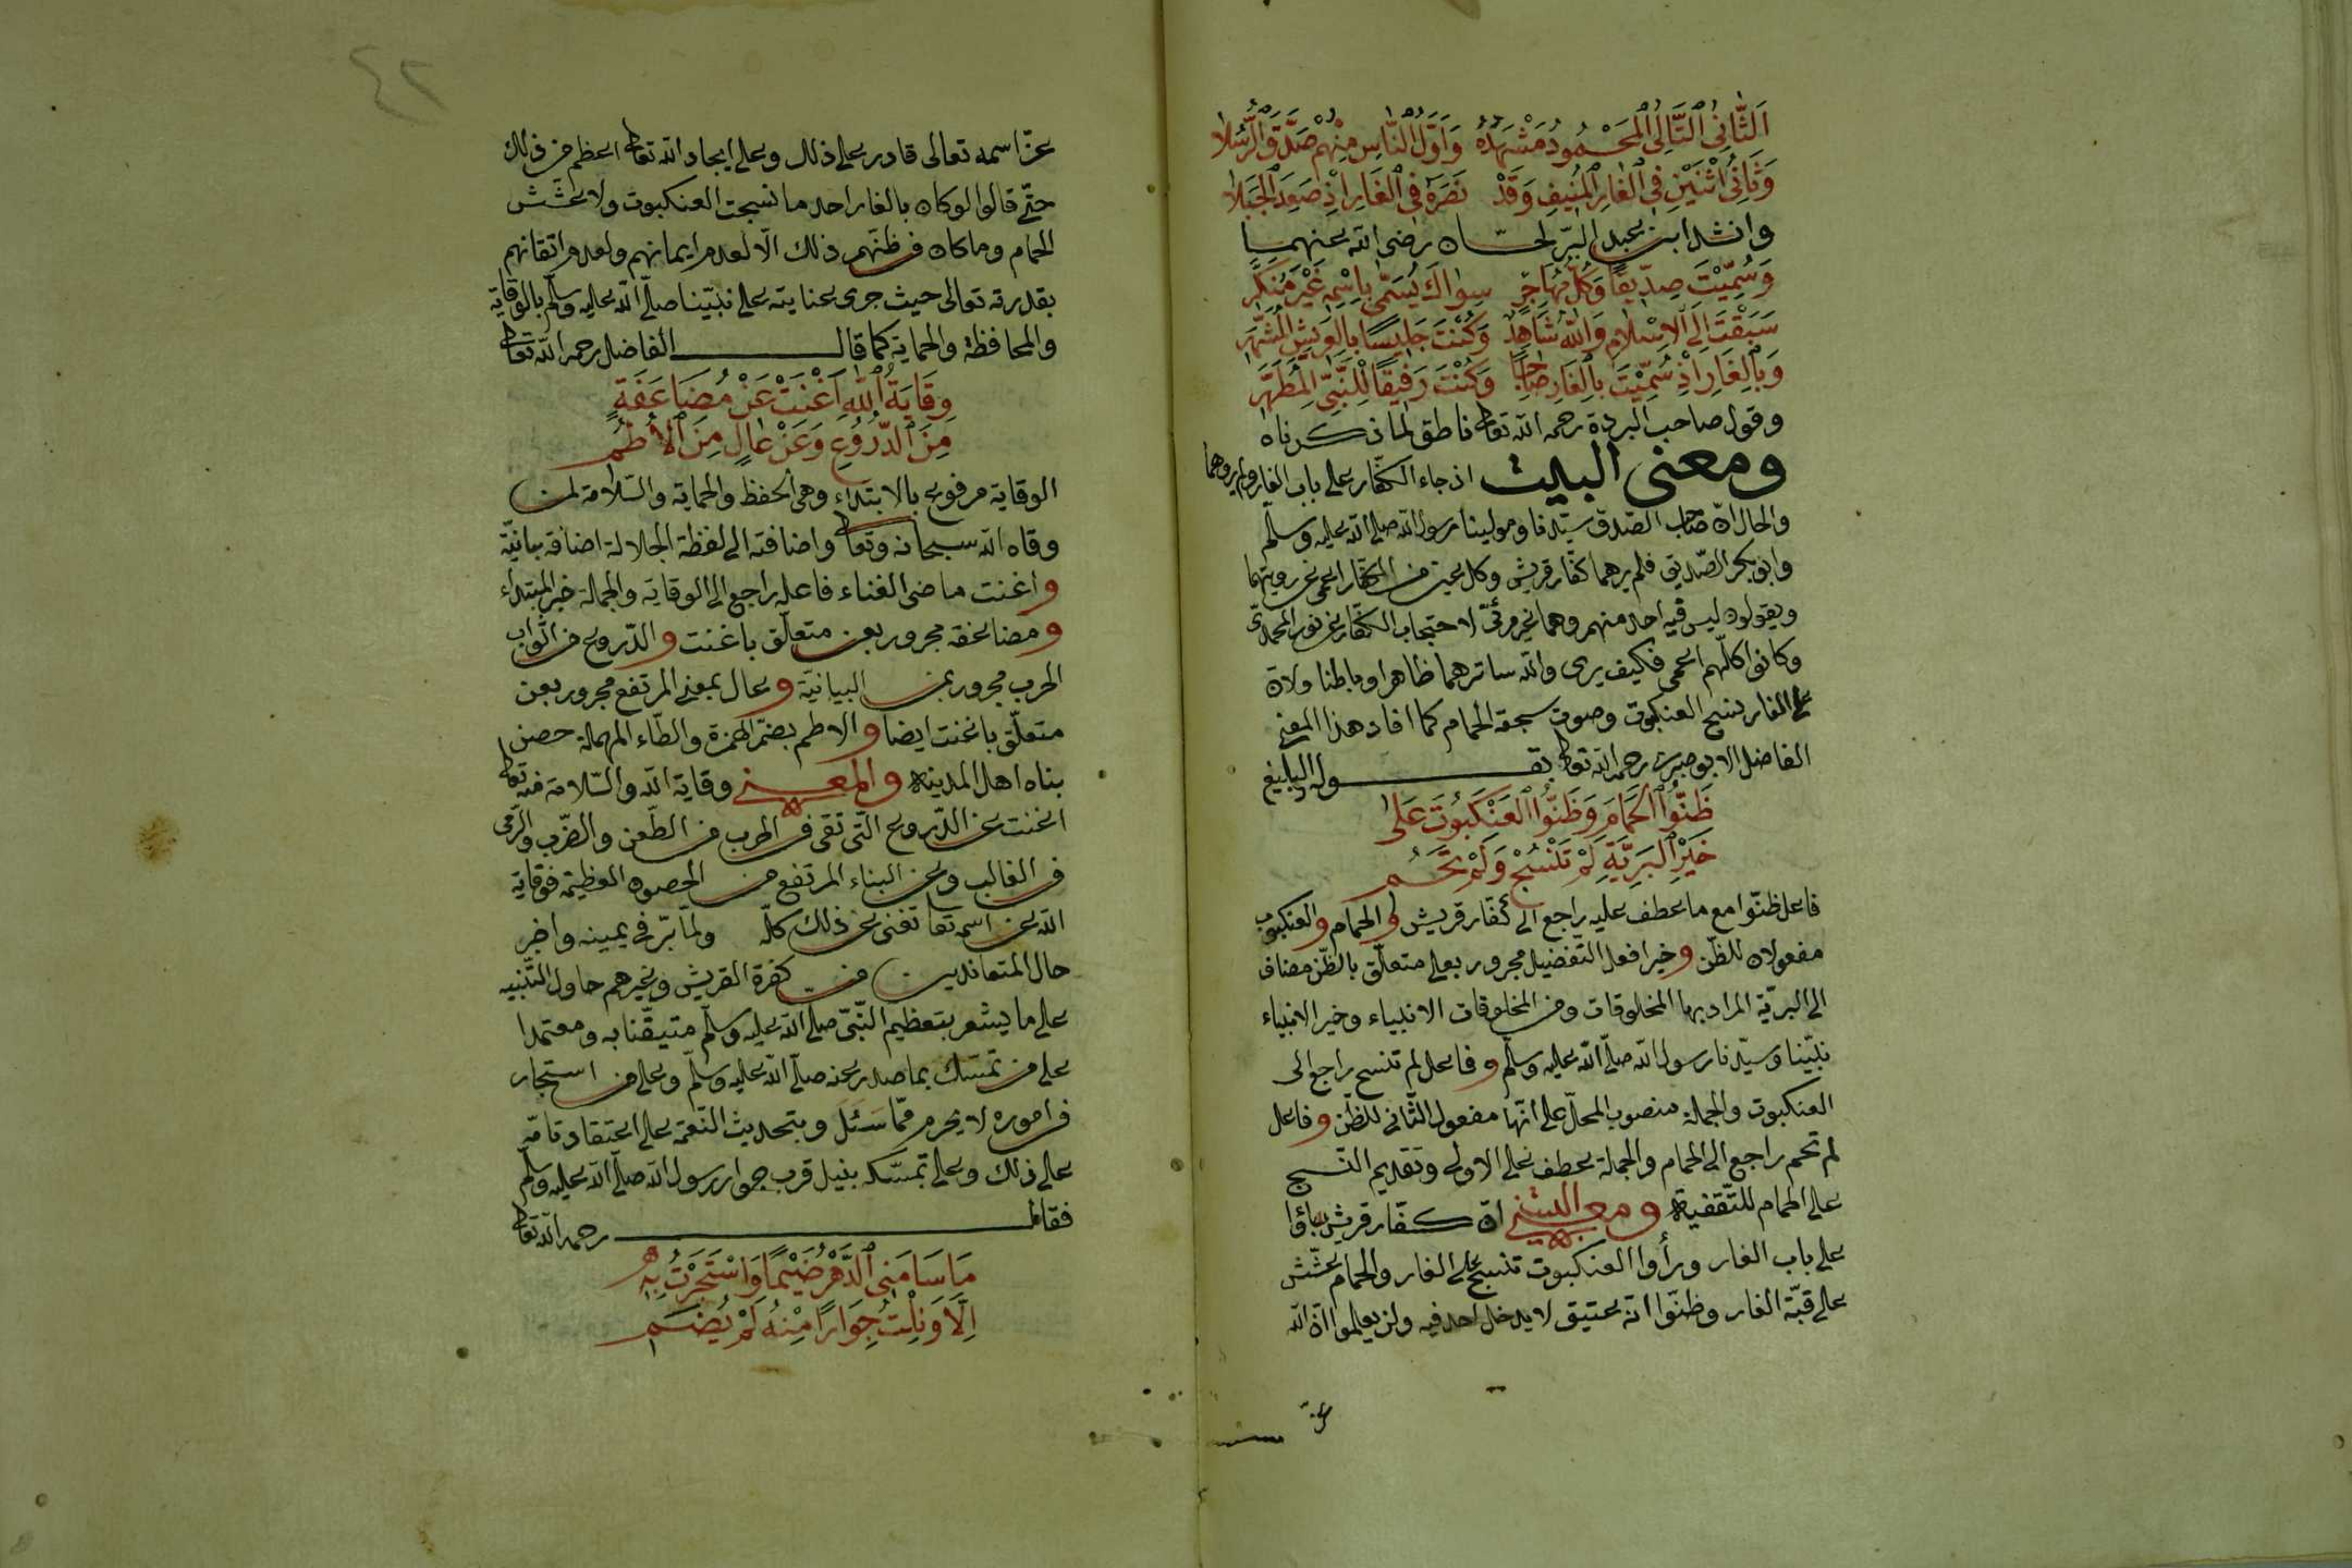 اَلثَّانِي التَّالِي الْمَحْمُودُ مَشْهَدُهُ وَاَوَّلُ النَّاسِ مِنْهُمْ صَدَّقَ الرُّسُلَا
وَثَانِي اثْنَيْنِ فِي الْغَارِ الْمُنِيفِ وَقَدْ نَصَرَهُ فِي الْغَارِ اِذْ صَعِدَ الْجَبَلَا
وانشد ابن عبد البرّ لحسّان رضى الله عنهما
وَسُمِّيْتَ صِدِّيقًا وَكُلُّ مُهَاجِرٍ سِوَاكَ يُسَمَّى بِاِسْمِهِ غَيْرَ مُنْكَرٍ
سَبَقْتَ اِلَى الْاِسْلَامِ وَاللهُ شَاهِدٌ وَكُنْتَ جَلِيسًا بِالْعَرِيشِ الْمُشَهَّرِ
وَبِالْغَارِ اِذْ سُمِّيْتَ بِالْغَارِ صَاحِبًا وَكُنْتَ رَفِيقًا لِلنَّبِيِّ الْمُطَهَّرِ
وقول صاحب البردة رحمه الله تعالى ناطق لما ذكرناه
ومعنى البيت اذ جاء الكفّار على باب الغار ولم يروهما
والحال انّ صاحب الصّدق سيّدنا ومولينا رسول الله صلى الله عليه وسلّم
وابو بكر الصّديق فلم يرهما كفّار قريش وكل عين من الكفّار اعمى عن رويتهما
ويقولون ليس فيه احد منهم وهما غير مرئىّ لاحتجاب الكفّار عن نور المحمدىّ
وكانوا كلّهم اعمى فكيف يرى والله ساترهما ظاهرا وباطنا ولانّ
على الغار نسج العنكبوت وصوت سجعة الحمام كما افاد هذا المعنى
الفاضل الابوصيرى رحمه الله تعالى بقوله البليغ
ظَنُّوا الْحَمَامَ وَظَنُّوا الْعَنْكَبُوتَ عَلٰى
خَيْرِ الْبَرِيَّةِ لَمْ تَنْسُجْ وَلَمْ تَحُمِ
فاعل ظنّوا مع ما عطف عليه راجع الى كفّار قريش و الحمام والعنكبوت
مفعولان للظّن وخير افعل التّفضيل مجرور بعلى متعلّق بالظّن مضاف
الى البريّة المراد بها المخلوقات ومن المخلوقات الانبياء وخير الانبياء
نبيّنا وسيّدنا رسول الله صلّى الله عليه وسلّم وفاعل لم تنسج راجع الى
العنكبوت والجملة منصوب المحلّ على انّها مفعول الثّانى للظّن وفاعل
لم تحم راجع الى الحمام والجملة عطف على الاولى وتقديم النّسج
على الحمام للتّقفية ومعنى البيت انّ كفّار قريش جاؤا
على باب الغار ورأوا العنكبوت تنسج على الغار والحمام عشّش
على قبّة الغار وظنّوا انّه عتيق لا يدخل احد فيه ولم يعلموا انّ الله
عزّ
٤٢
عزّ اسمه تعالى قادر على ذلك وعلى ايجاد الله تعالى اعظم من ذلك
حتّى قالوا لو كان بالغار احد ما نسجت العنكبوت ولا عشّش
الحمام وما كان فى ظنّهم ذلك الّا لعدم ايمانهم ولعدم اتقانهم
بقدرته تعالى حيث جرى عنايته على نبيّنا صلّى الله عليه وسلّم بالوقاية
والمحافظة والحماية كما قال الفاضل رحمه الله تعالى
وِقَايَةُ اللهِ اَغْنَتْ عَنْ مُضَاعَفَةٍ
مِنَ الدُّرُوعِ وَعَنْ عَالٍ مِنَ الْاُطُمِ
الوقاية مرفوع بالابتداء وهى الحفظ والحماية والسّلامة لمن
وقاه الله سبحانه وتعالى واضافته الى لفظة الجلالة اضافة بيانيّة
واغنت ماضى الغناء فاعله راجع الى الوقاية والجملة خبر المبتداء
ومضاعفة مجرور بعن متعلّق باغنت والدّروع من اثواب
الحرب مجرور بمن البيانيّة وعال بمعنى المرتفع مجرور بعن
متعلّق باغنت ايضا والاطم بضمّ الهمزة والطّاء المهملة حصن
بناه اهل المدينة والمعنى وقاية الله والسّلامة منه تعالى
اغنت عن الدّروع الّتى تقى فى الحرب من الطّعن والضّرب والرّمى
فى الغالب وعن البناء المرتفع من الحصون العظيمة فوقاية
الله عن اسمه تعا تغنى عن ذلك كلّه ولمّا برّ فى يمينه واخبر
حال المتعاندين من كفرة القريش وغيرهم حاول التّنبيه
على ما يشعر بتعظيم النّبىّ صلّى الله عليه وسلّم متيقّنا به ومعتمدا
على من تمسّك بما صدر عنه صلّى الله عليه وسلّم وعلى من استجار
فى اموره لا يحرم ممّا سَئَلَ وبتحديث النّعمة على اعتقاد تامّة
على ذلك وعلى تمسّكه بنيل قرب جوار رسول الله صلّى الله عليه وسلّم
فقال رحمه الله تعالى
مَا سَامَنِى الدَّهْرُ ضَيْمًا وَاسْتَجَرْتُ بِهِ
اِلَّا وَنِلْتُ جِوَارًا مِنْهُ لَمْ يُضَمِ